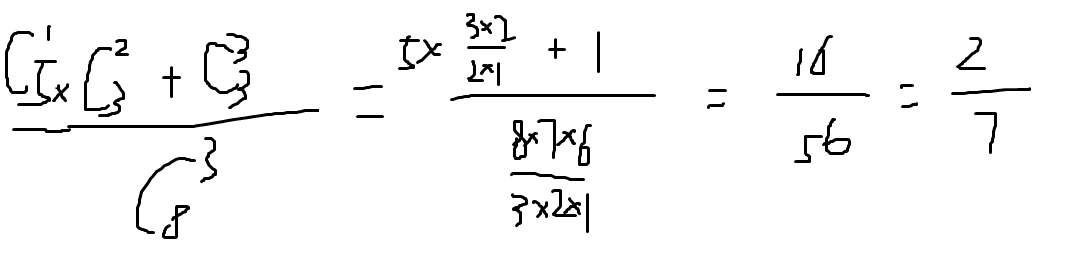 \frac{C_5^1 \times C_3^2 + C_3^3}{C_8^3} = \frac{5 \times \frac{3 \times 2}{2 \times 1} + 1}{\frac{8 \times 7 \times 6}{3 \times 2 \times 1}} = \frac{16}{56} = \frac{2}{7}